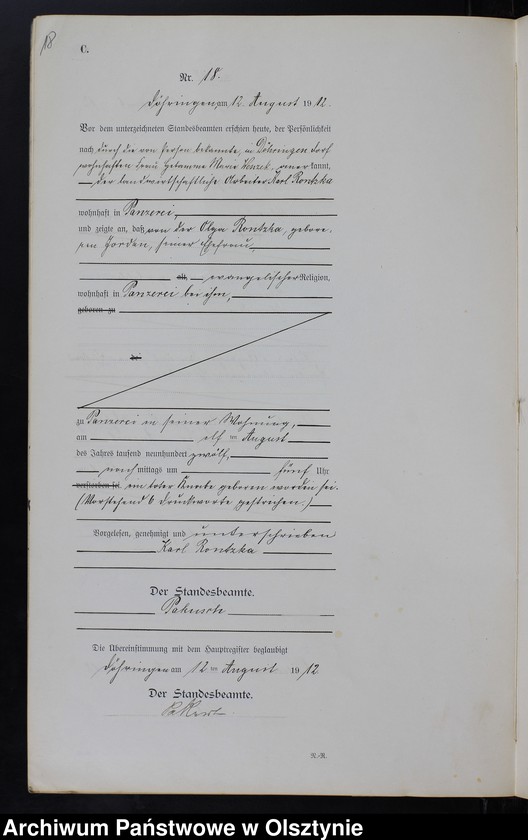 18
C.
Nr. 18.
Döhringen am 12. August 1912.
Vor dem unterzeichneten Standesbeamten erschien heute, der Persönlichkeit
nach durch die von Person bekannte, in Döhringen Dorf
wohnhaften Frau Hebamme Marie anerkannt,
der landwirtschaftliche Arbeiter Karl Rontzka
wohnhaft in Panzerei,
und zeigte an, daß von der Olga Rontzka, gebore-
nen Jorden, seiner Ehefrau,
alt, evangelischer Religion,
wohnhaft in Panzerei bei ihm,
geboren zu
de
zu Panzerei in seiner Wohnung,
am elf ten August
des Jahres tausend neunhundert zwölf,
nachmittags um fünf Uhr
verstorben sei. ein toter Knabe geboren worden sei.
(Vorstehend 6 Druckworte gestrichen.)
Vorgelesen, genehmigt und unterschrieben
Karl Rontzka
Der Standesbeamte.
Die Übereinstimmung mit dem Hauptregister beglaubigt
Döhringen am 12 ten August 1912
Der Standesbeamte.
N.-R.
Archiwum Państwowe w Olsztynie